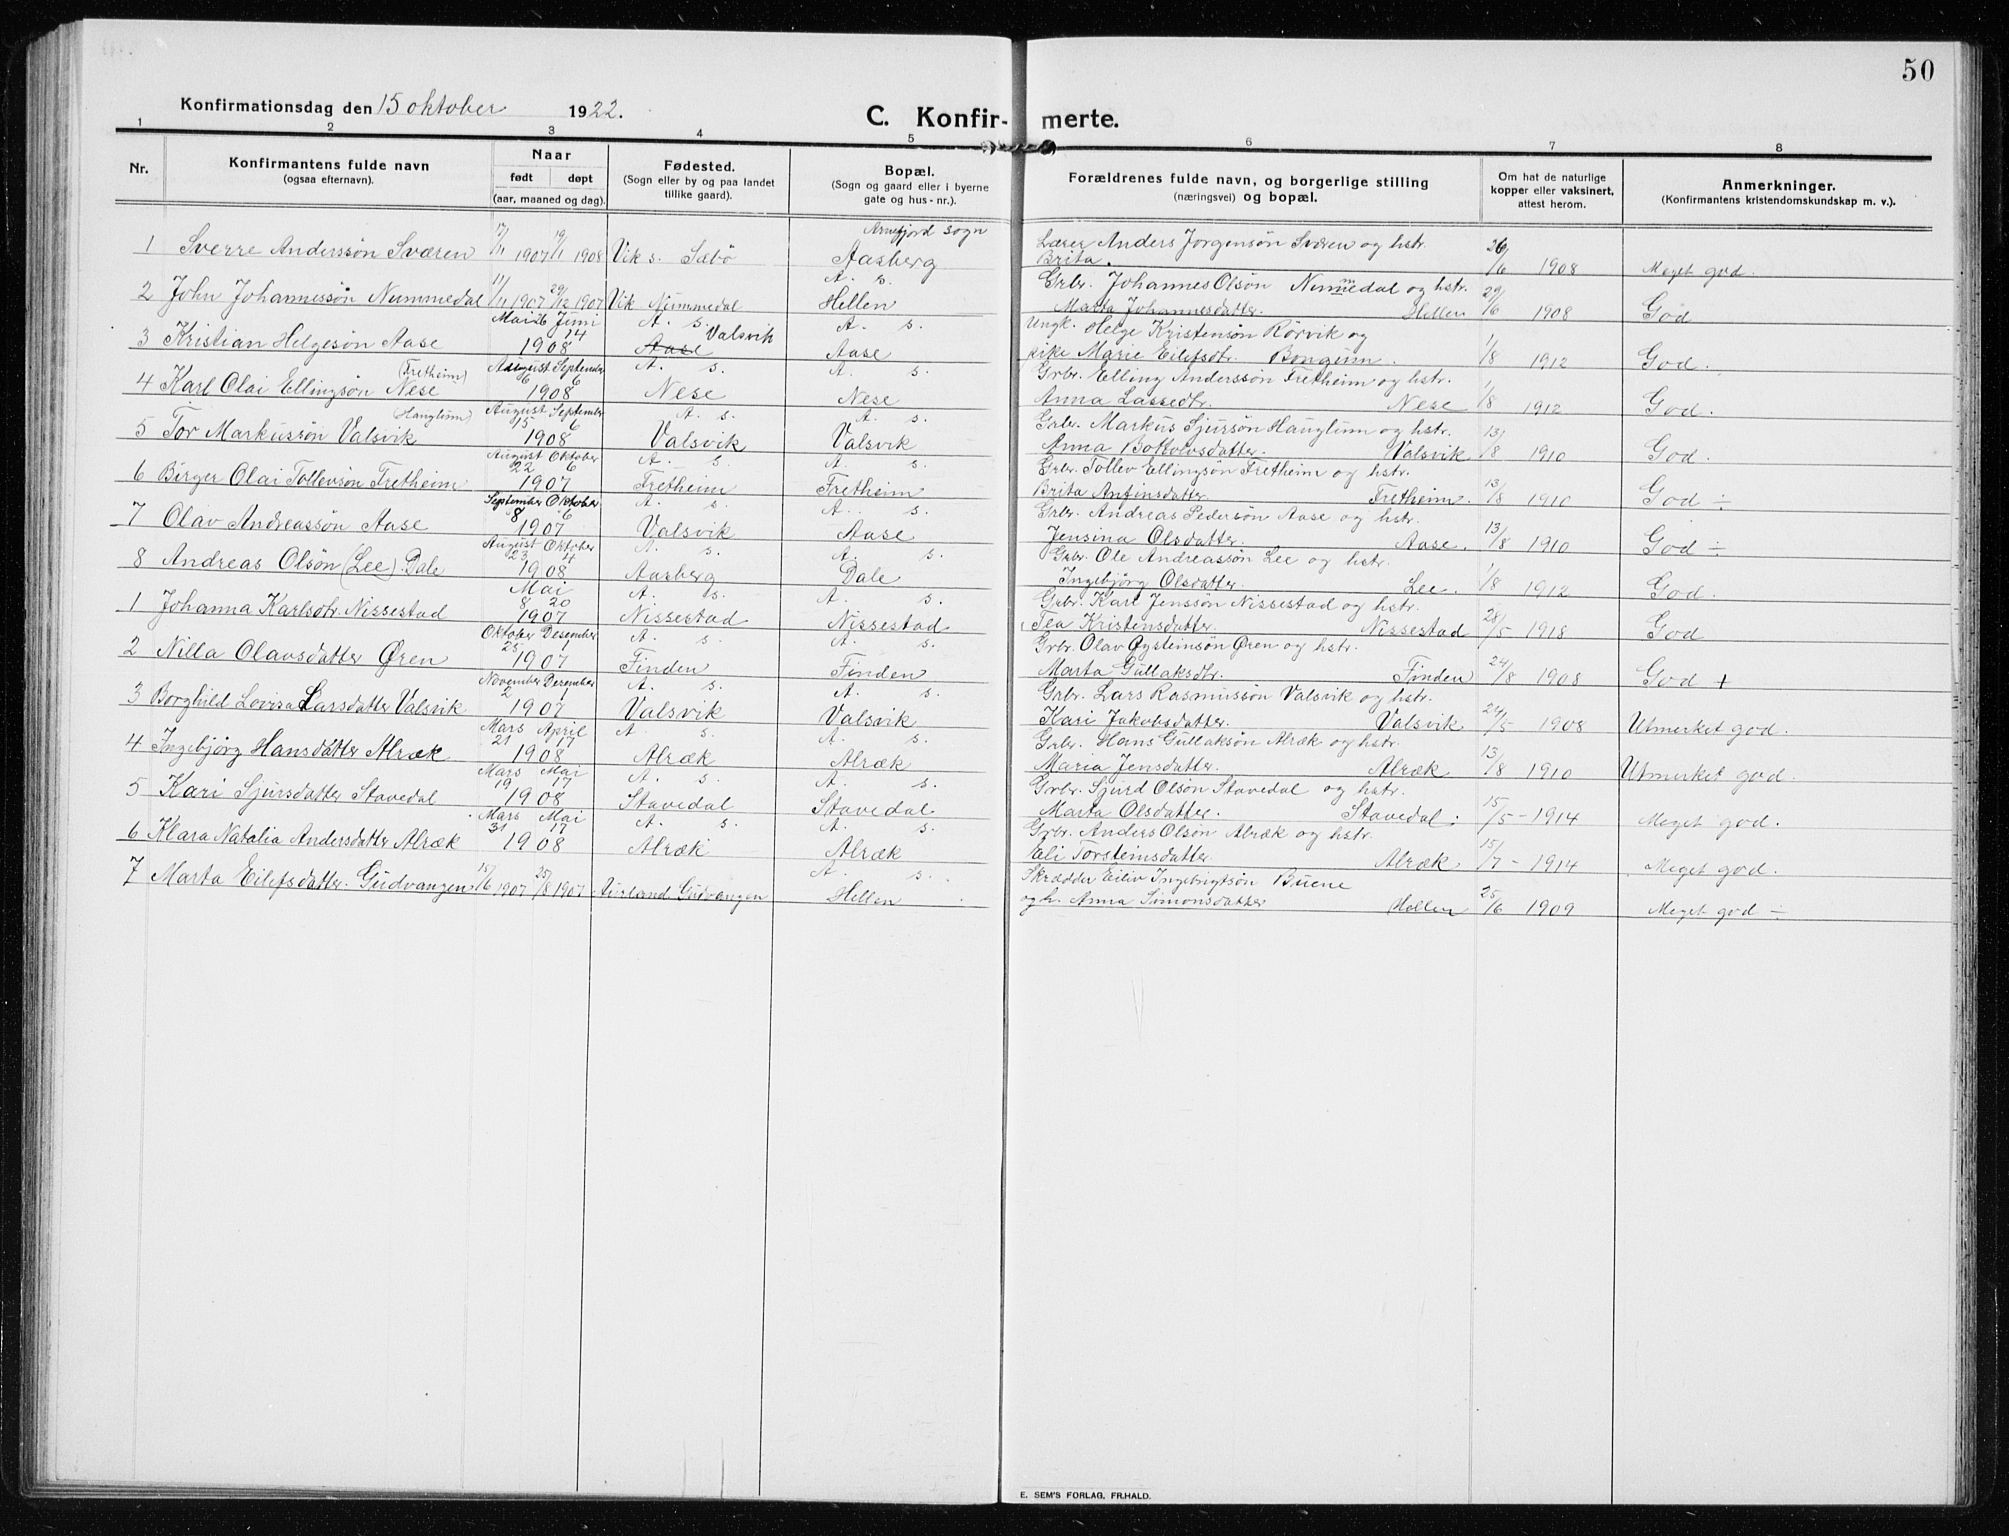 50
Konfirmationsdag den 15 oktober 1922.
C. Konfirmerte.
1 2 3 4 5 6 7 8
Nr.
Konfirmantens fulde navn
(ogsaa efternavn).
Naar
født døpt
(aar, maaned og dag).
Fødested.
(Sogn eller by og paa landet
tillike gaard).
Bopæl.
(Sogn og gaard eller i byerne
gate og hus-nr.).
Forældrenes fulde navn, og borgerlige stilling
(næringsvei) og bopæl.
Om hat de naturlige
kopper eller vaksinert,
attest herom.
Anmerkninger.
(Konfirmantens kristendomskundskap m. v.).
Arnefjord sogn
1 Sverre Anderssøn Sværen 17/11 1907 19/1 1908 Vik s. Sæbö Aasberg Lærer Anders Jorgensøn Sværen og hstr.
Brita. 26/6 1908 Meget god.
A. s.
2 John Johannessøn Nummedal 11/11 1907 29/12 1907 Vik Nummedal Hellen Grbr. Johannes Olsøn Nummedal og hstr.
Marta Johannesdatter. Hellen 29/6 1908 God
Mai 26 Juni 14 A. s. Valsvik A. s.
3 Kristian Helgesøn Aase 1908 Aase Aase Ungk. Helge Kristensøn Rörvik og
pike Marie Eilefsdtr. Bongum. 1/8 1912 God.
(Fretheim) August 6 September 6 A. s. A. s.
4 Karl Olai Ellingsøn Nese 1908 Nese Nese Grbr. Elling Anderssøn Fretheim og hstr.
Anna Lassedtr. Nese 1/8 1912 God.
(Hauglum) August 15 September 6 A. s. A. s.
5 Tor Markussøn Valsvik 1908 Valsvik Valsvik Grbr. Markus Sjurssøn Hauglum og hstr.
Anna Botolvsdatter. Valsvik 13/8 1910 God.
August 22 Oktober 6 A. s. A. s.
6 Birger Olai Tollevsøn Fretheim 1907 Fretheim Fretheim Grbr. Tollev Ellingsøn Fretheim og hstr.
Brita Anfinsdatter Fretheim. 13/8 1910 God ÷
September 8 Oktober 6 A. s. A. s.
7 Olav Andreassøn Aase 1907 Valsvik Aase Grbr. Andreas Pedersøn Aase og hstr.
Jensina Olsdatter. Aase. 13/8 1910 God ÷
August 23 Oktober 4 A. s. A. s.
8 Andreas Olsøn (Lee) Dale 1908 Aasberg Dale Grbr. Ole Andreassøn Lee og hstr.
Ingebjörg Olsdatter. Lee. 1/8 1912 God.
Mai 8 20 A. s. A. s.
1 Johanna Karlsdtr. Nissestad 1907 Nissestad Nissestad Grbr. Karl Jenssøn Nissestad og hstr.
Tea Kristensdatter. Nissestad 28/5 1918 God
Oktober 25 Desember 1 A. s. A. s.
2 Nilla Olavsdatter Øren 1907 Finden Finden Grbr. Olav Øysteinsøn Øren og hstr.
Marta Gullaksdtr. Finden 24/8 1908 God +
November 2 Desember 1 A. s. A. s.
3 Borghild Lovisa Larsdatter Valsvik 1907 Valsvik Valsvik Grbr. Lars Rasmussøn Valsvik og hstr.
Kari Jakobsdatter. Valsvik 24/5 1908 Utmerket god.
Mars 21 April 17 A. s. A. s.
4 Ingebjørg Hansdatter Alræk 1908 Alræk Alræk Grbr. Hans Gullaksøn Alræk og hstr.
Maria Jensdatter. Alræk 13/8 1910 Utmerket god.
Mars 19 Mai 17 A. s. A. s.
5 Kari Sjursdatter Stavedal 1908 Stavedal Stavedal Grbr. Sjurd Olsøn Stavedal og hstr.
Marta Olsdatter. Stavedal. 15/5 - 1914 Meget god.
Mars 31 Mai 17 A. s. A. s.
6 Klara Natalia Andersdatter Alræk 1908 Alræk Alræk Grbr. Anders Olsøn Alræk og hstr.
Eli Torsteinsdatter. Alræk 15/7 - 1914 Meget god.
A. s.
7 Marta Eilefsdatter Gudvangen 15/6 1907 25/8 1907 Aurland Gudvangen Hellen Skrædder Eiliv Ingebrigtsøn Buene
og h. Anna Simonsdatter Hellen 25/6 1909 Meget god ÷
E. SEM'S FORLAG, FR.HALD.